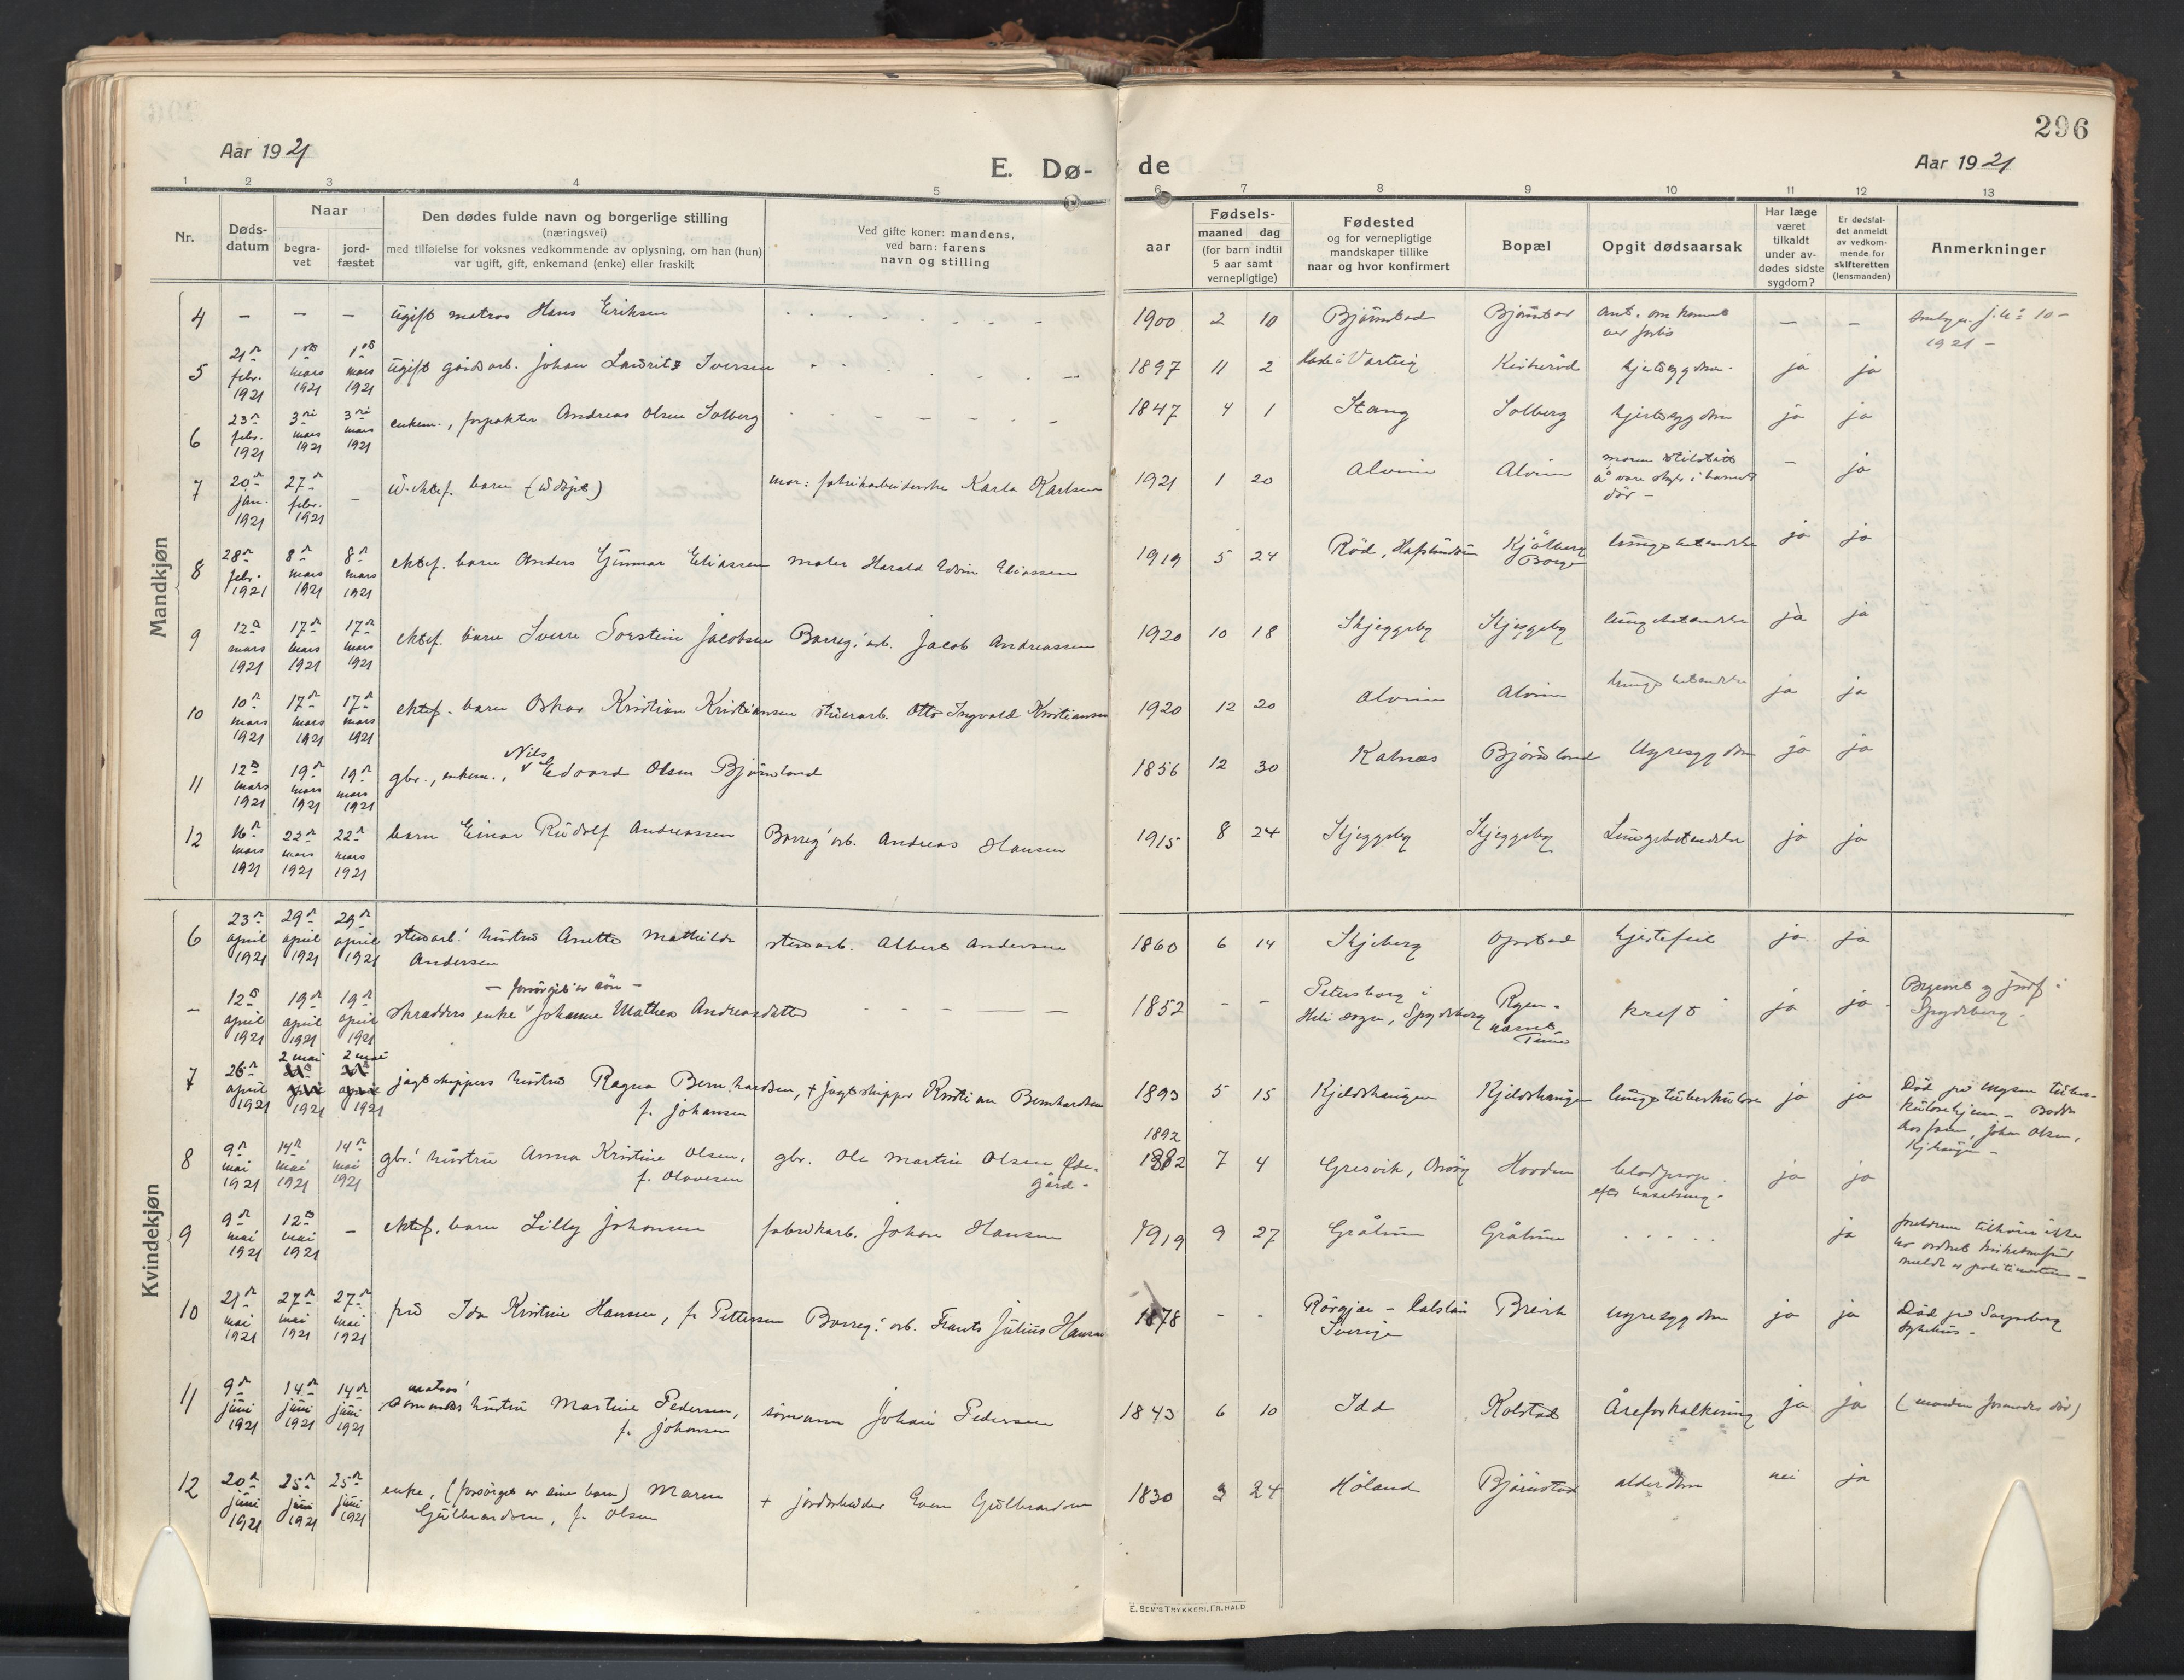 296
Aar 1921
E. Dø- de
Aar 1921
1 2 3 4 5 6 7 8 9 10 11 12 13
Nr.
Døds-
datum
Naar
begra-
vet
jord-
fæstet
Den dødes fulde navn og borgerlige stilling
(næringsvei)
med tilføielse for voksnes vedkommende av oplysning, om han (hun)
var ugift, gift, enkemand (enke) eller fraskilt
Ved gifte koner: mandens,
ved barn: farens
navn og stilling
aar
Fødsels-
maaned dag
(for barn indtil
5 aar samt
vernepligtige)
Fødested
og for vernepligtige
mandskaper tillike
naar og hvor konfirmert
Bopæl
Opgit dødsaarsak
Har læge
været
tilkaldt
under av-
dødes sidste
sygdom?
Er dødsfal-
det anmeldt
av vedkom-
mende for
skifteretten
(lensmanden)
Anmerkninger
Mandkjøn
4 — — — ugift matros Hans Eriksen 1900 2 10 Bjørnstad Bjørnstad ant. omkommet
ver forlis — — 
1921 —
5 21 febr. 1921 1 mars 1921 1 mars 1921 ugift gårdsarb. Johan Lauritz Iversen 1897 11 2 Varteig hjertesygdom ja ja
6 23 febr. 1921 3 mars 1921 3 mars 1921 enkem., forpakter Andreas Olsen Solberg 1847 4 1 Stang Solberg hjertesygdom ja ja
7 20 jan. 1921 27 febr. 1921 — u-ektef. barn (udøpt) mor: fabrikarbeiderske Karla Karlsen 1921 1 20 Alvim Alvim moren
å være skyld i barnets
død — — ja
8 28 febr. 1921 8 mars 1921 8 mars 1921 ektef. barn Anders Gunnar Eliassen maler Harald Edvin Eliassen 1919 5 24 Rød, Hafslundsøen Kjølberg
Borge lungebetændelse ja ja
9 12 mars 1921 17 mars 1921 17 mars 1921 ektef. barn Sverre Torstein Jacobsen Borreg. arb. Jacob Andreassen 1920 10 18 Skjeggeby Skjeggeby lungebetændelse ja ja
10 10 mars 1921 17 mars 1921 17 mars 1921 ektef. barn Oskar Kristian Kristiansen stuerarb. Otto Ingvald Kristiansen 1920 12 20 Alvim Alvim lungebetændelse ja ja
11 12 mars 1921 19 mars 1921 19 mars 1921 gbr., enkem., Nils Edvard Olsen Bjørnland 1856 12 30 Kalnæs Bjørnland Nyresygdom ja ja
12 16 mars 1921 22 mars 1921 22 mars 1921 barn Einar Rudolf Andreassen Borreg. arb. Andreas Hansen 1915 8 24 Skjeggeby Skjeggeby Lungebetændelse ja ja
Kvindekjøn
6 23 april 1921 29 april 1921 29 april 1921 stenarb. hustru Anette Mathilde
Andersen stenarb. Albert Andersen 1860 6 14 Skjeberg Opstad hjertefeil ja ja
— 12 april 1921 19 april 1921 19 april 1921 — forsørget av søn —
skrædders enke Johanne Mathea Andreasdatter 1852 - - Petersborg i
Heli sogn, Spydeberg
Tune kræft ja ja Begravet og jordf. i
Spydeberg.
7 26 april 1921 2 mai 1921 2 mai 1921 jagtskippers hustru Ragna Bernhardsen,
f. Johansen + jagtskipper Kristian Bernhardsen 1893 5 15 Kjeldshaugen Kjeldshaugen lungetuberkulose ja ja Død på Mysen tuber-
kulosehjem — Bodde
hos faren, Johan Olsen,
Kj.haugen —
8 9 mai 1921 14 mai 1921 14 mai 1921 gbr. hustru Anna Kristine Olsen,
f. Olavesen gbr. Ole Martin Olsen Øde-
gård — 1892
1882 7 4 Gresvik, Onsøy blodprop
efter barselseng — ja ja
9 9 mai 1921 12 mai 1921 — ektef. barn Lilly Johansen fabrikarb. Johan Hansen 1919 9 27 Grålum Grålum ja
10 21 mai 1921 27 mai 1921 27 mai 1921 fru Ida Kristine Hansen, f. Pettersen Borreg. arb. Frants Julius Hansen 1878 - -
Sverige Brevik nyresygdom ja ja Død på Sarpsborg
sykehus —
11 9 juni 1921 14 juni 1921 14 juni 1921 matros'
sømands hustru Martine Pedersen,
f. Johansen sømann Johan Pedersen 1843 6 10 Idd Kolstad Åreforkalkning ja ja (manden formodes død)
12 20 juni 1921 25 juni 1921 25 juni 1921 enke, (forsørget av sine barn) Maren
Gulbrandsen, f. Olsen + jordarbeider Even Gulbrandsen 1830 3 24 Høland Bjørnstad alderdom nei ja
E. SEM'S TRYKKERI, FR.HALD